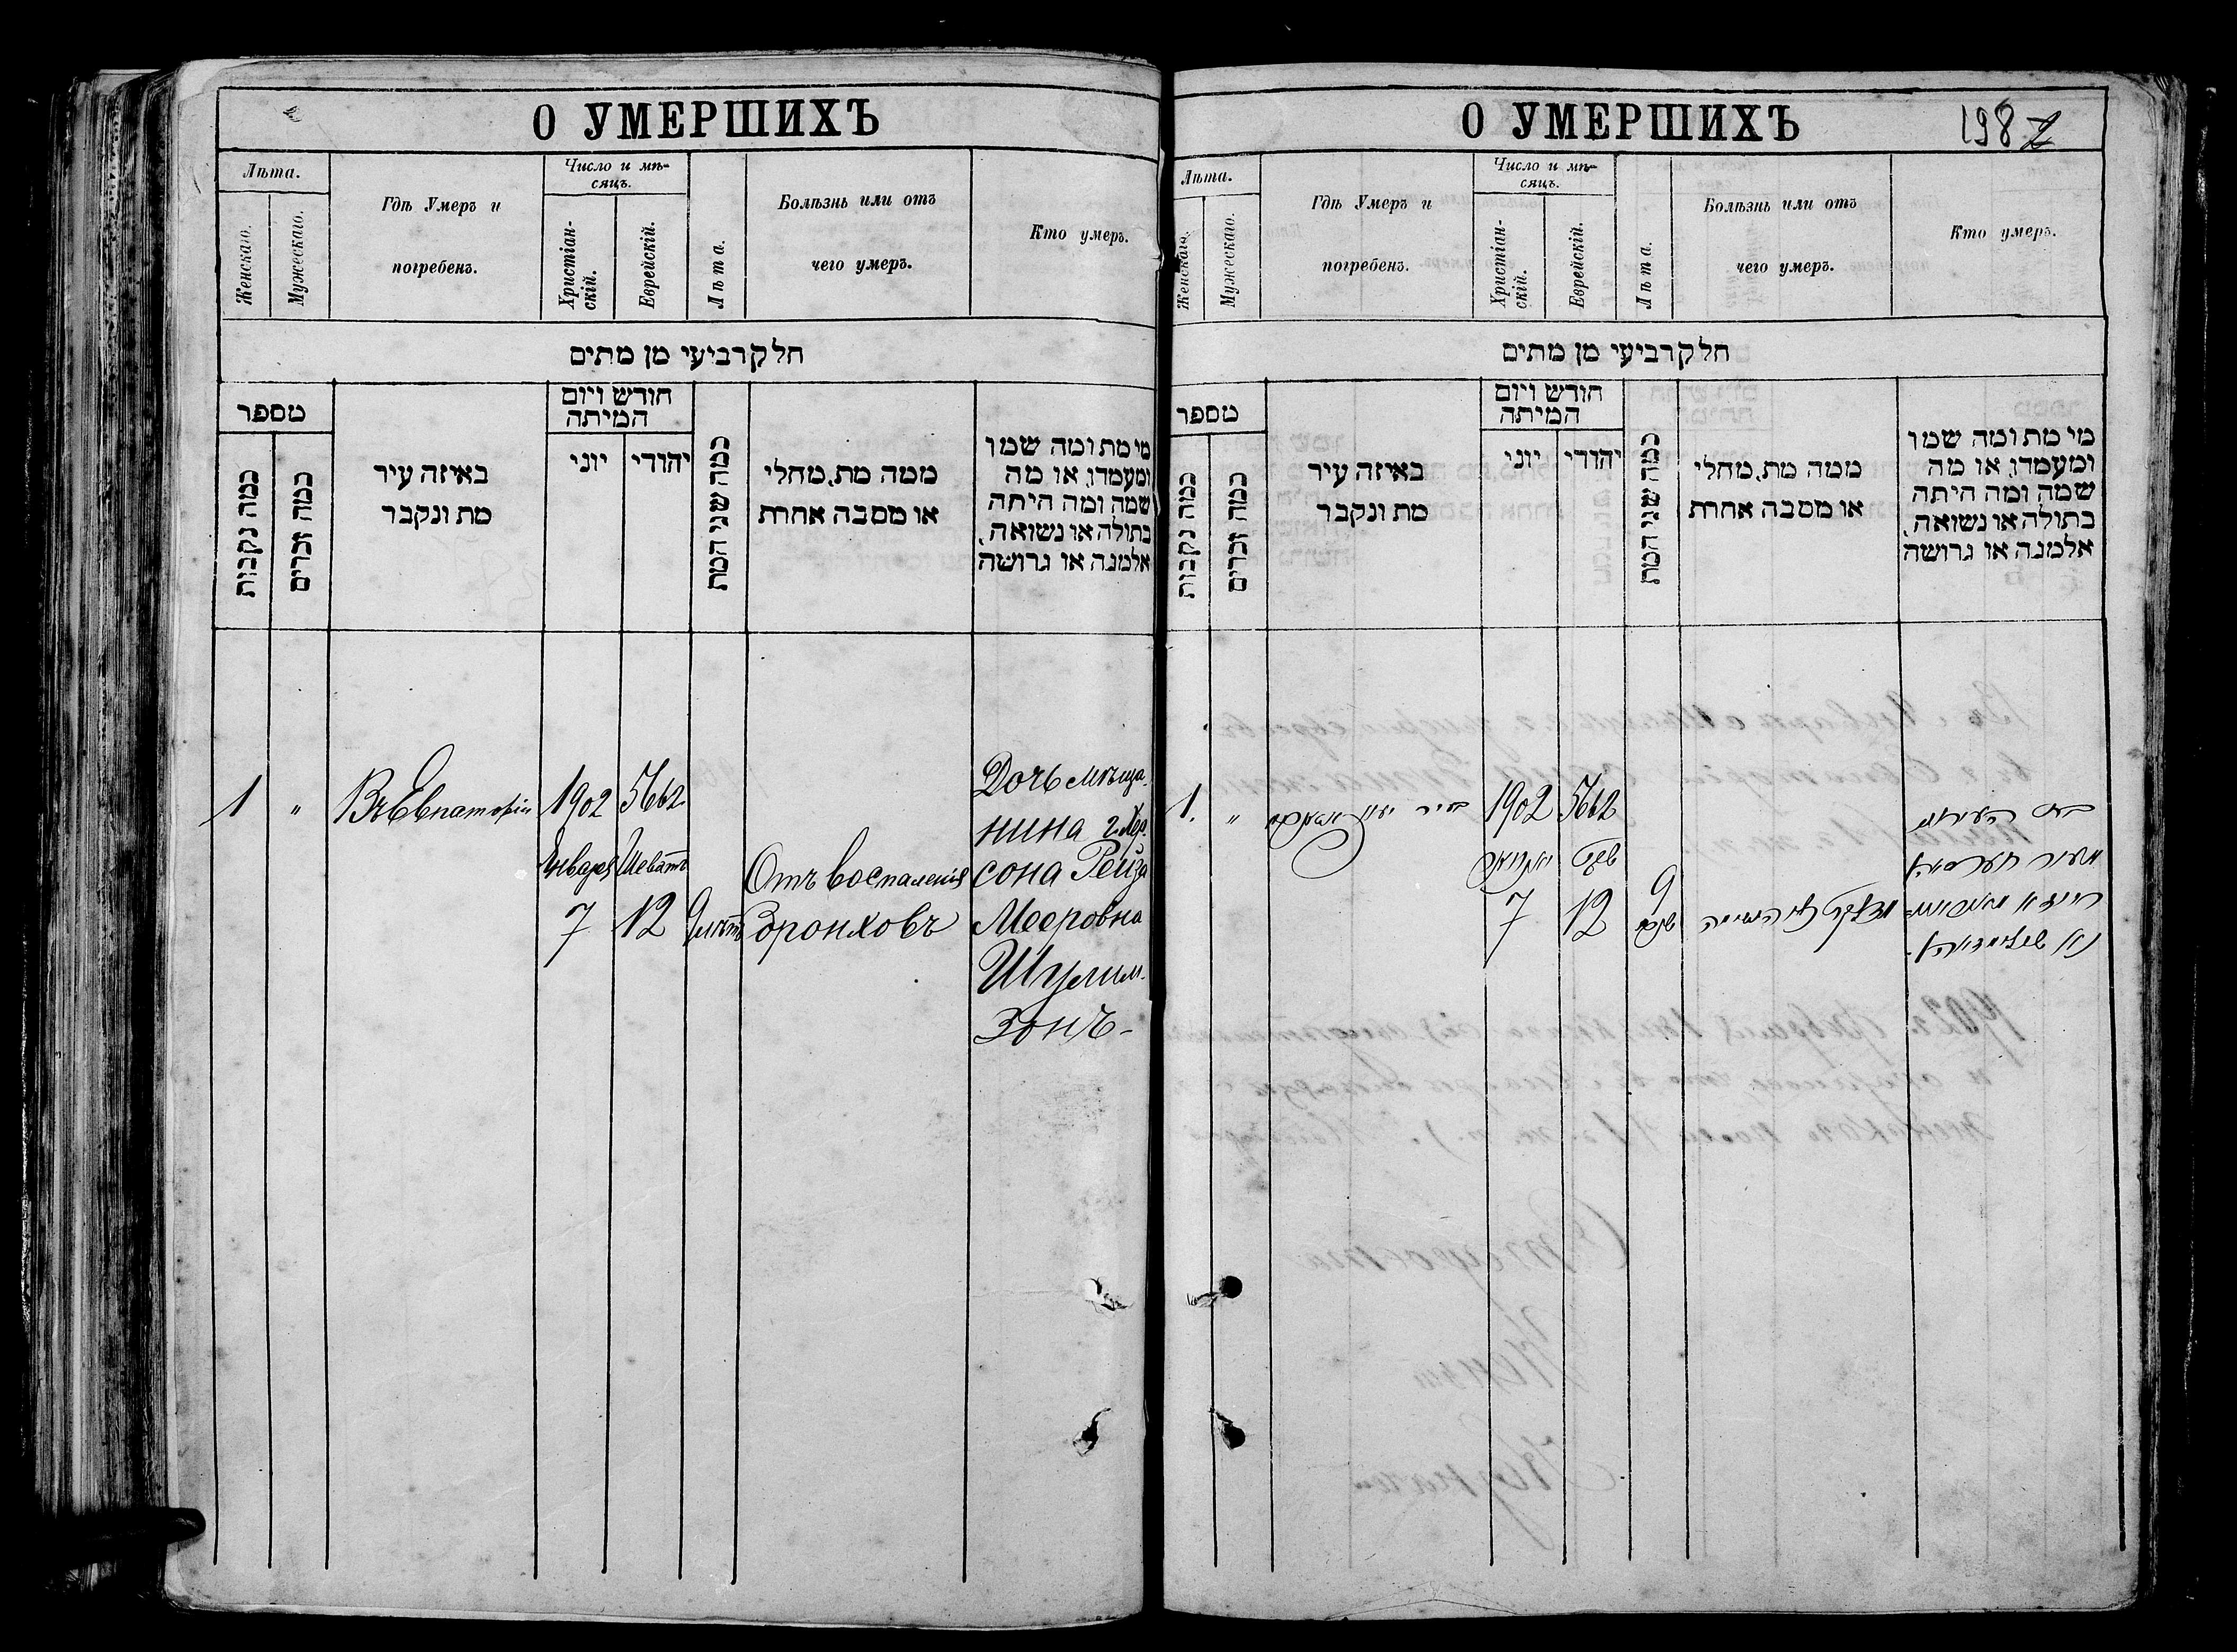 О УМЕРШИХЪ
Лѣта.
Женскаго.
Мужескаго.
Гдѣ Умеръ и
погребенъ.
Число и мѣ-
сяцъ.
Христіан-
скій.
Еврейскій.
Лѣта.
Болѣзнь или отъ
чего умеръ.
Кто умеръ.
חלק רביעי מן מתים
מספר
כמה נקבות
כמה זכרים
באיזה עיר
מת ונקבר
חודש ויום
המיתה
יוני
יהודי
כמה שני המת
ממה מת, מחלי
או מסבה אחרת
מי מת ומה שמו
ומעמדו, או מה
שמה ומה היתה
בתולה או נשואה,
אלמנה או גרושה
1
"
Въ Евпаторіи
1902
Января
7
5662
Шеватъ
12
9
лѣтъ
Отъ воспаленія
бронховъ
Дочь мѣща-
нина г. Хер-
сона Рейза
Мееровна
Шулим-
зонъ-
О УМЕРШИХЪ
198
Лѣта.
Женскаго.
Мужескаго.
Гдѣ Умеръ и
погребенъ.
Число и мѣ-
сяцъ.
Христіан-
скій.
Еврейскій.
Лѣта.
Болѣзнь или отъ
чего умеръ.
Кто умеръ.
חלק רביעי מן מתים
מספר
כמה נקבות
כמה זכרים
באיזה עיר
מת ונקבר
חודש ויום
המיתה
יוני
יהודי
כמה שני המת
ממה מת, מחלי
או מסבה אחרת
מי מת ומה שמו
ומעמדו, או מה
שמה ומה היתה
בתולה או נשואה,
אלמנה או גרושה
1.
"
1902
יאנואר
7
5662
שבט
12
9
שנה